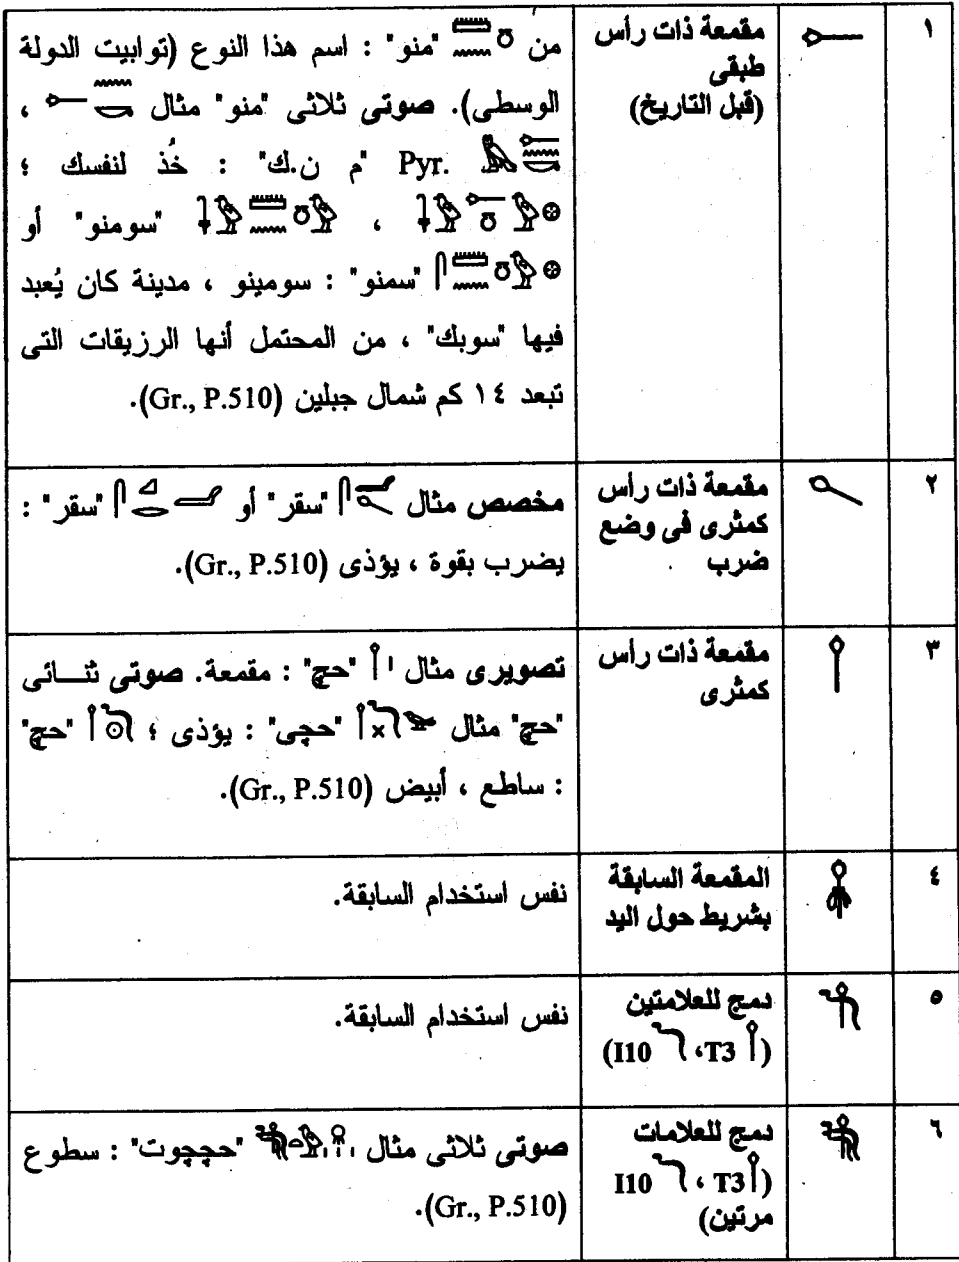 ١
مقمعة ذات رأس
طبقى
(قبل التاريخ)
من "منو" : اسم هذا النوع (توابيت الدولة
الوسطى). صوتى ثلاثى "منو" مثال ،
Pyr. "م ن.ك" : خُذ لنفسك ؛
، "سومنو" أو
"سمنو" : سومينو ، مدينة كان يُعبد
فيها "سوبك" ، من المحتمل أنها الرزيقات التى
تبعد ١٤ كم شمال جبلين (Gr., P.510).
٢
مقمعة ذات رأس
كمثرى فى وضع
ضرب
مخصص مثال "سقر" أو "سقر" :
يضرب بقوة ، يؤذى (Gr., P.510).
٣
مقمعة ذات رأس
كمثرى
تصويرى مثال "حچ" : مقمعة. صوتى ثنـــائى
"حچ" مثال "حچى" : يؤذى ؛ "حچ"
: ساطع ، أبيض (Gr., P.510).
٤
المقمعة السابقة
بشريط حول اليد
نفس استخدام السابقة.
٥
دمج للعلامتين
(T3، I10)
نفس استخدام السابقة.
٦
دمج للعلامات
(T3 ، I10
مرتين)
صوتى ثلاثى مثال "حچچوت" : سطوع
(Gr., P.510).